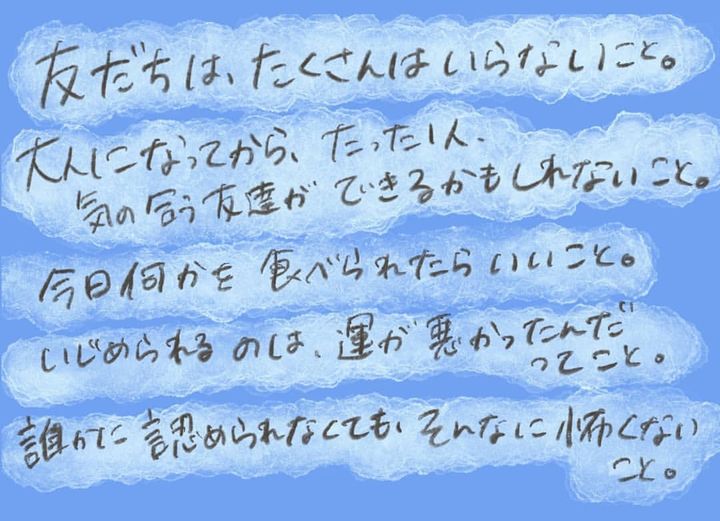 友だちは、たくさんはいらないこと。
大人になってから、たった1人、
気の合う友達ができるかもしれないこと。
今日何かを食べられたらいいこと。
いじめられるのは、運が悪かったんだ
ってこと。
誰かに認められなくても、そんなに怖くない
こと。